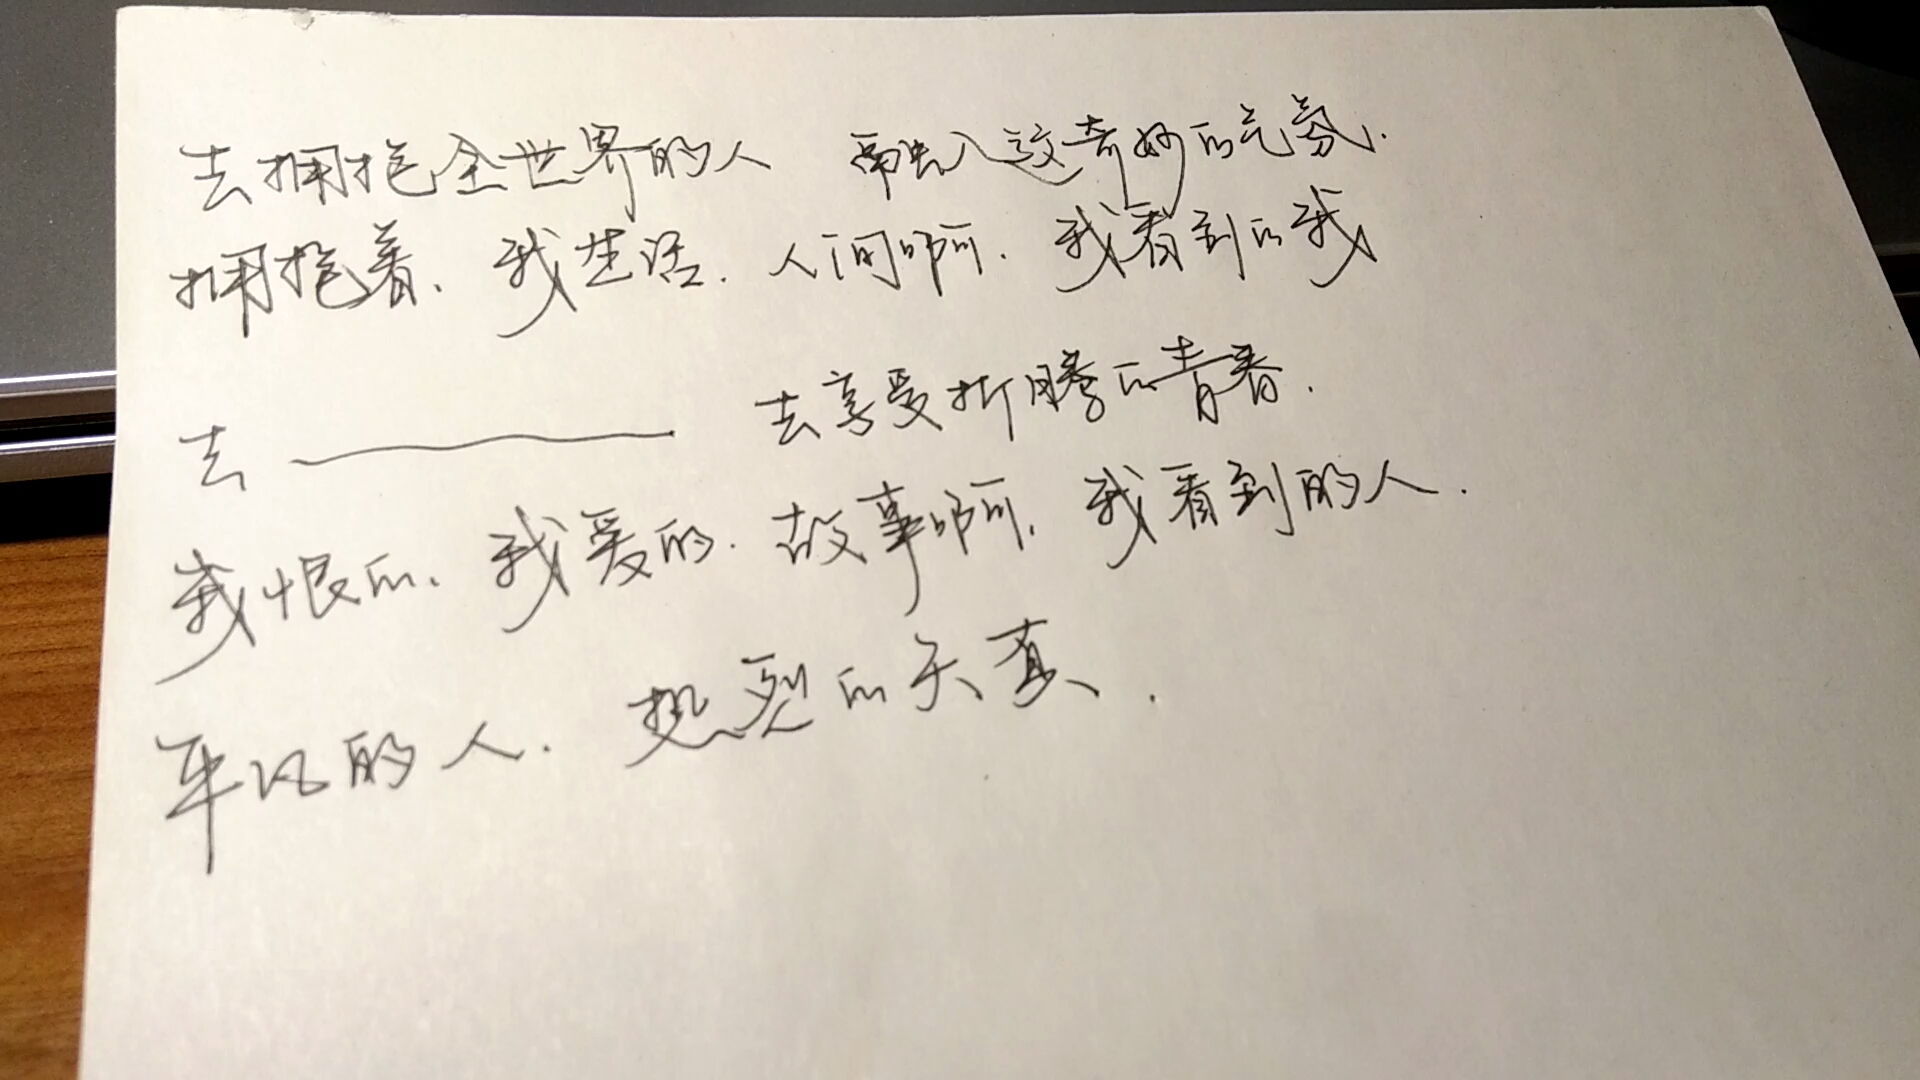 去拥抱全世界的人 融入这奇妙的气氛.
拥抱着.我生活.人间啊.我看到的我
去 去享受折腾的青春.
我恨的.我爱的.故事啊.我看到的人.
平凡的人.热烈的天真.